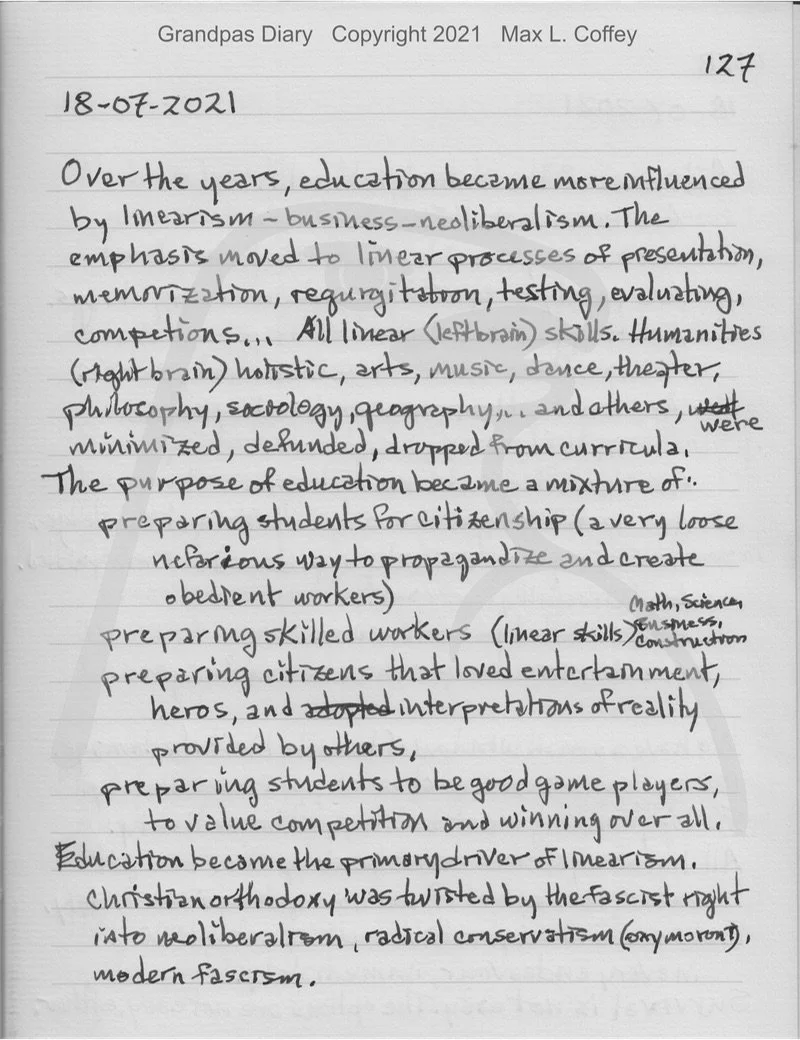 Grandpas Diary Copyright 2021 Max L. Coffey
127
18-07-2021
Over the years, education became more influenced
by linearism - business - neoliberalism. The
emphasis moved to linear processes of presentation,
memorization, regurgitation, testing, evaluating,
competions... All linear (left brain) skills. Humanities
(right brain) holistic, arts, music, dance, theater,
philosophy, sociology, geography,.. and others,
were
minimized, defunded, dropped from curricula.
The purpose of education became a mixture of:.
preparing students for citizenship (a very loose
nefarious way to propagandize and create
obedient workers)
Math, Science,
preparing skilled workers (linear skills)
construction
preparing citizens that loved entertainment,
heros, and adopted interpretations of reality
provided by others,
preparing students to be good game players,
to value competition and winning over all.
Education became the primary driver of linearism.
Christian orthodoxy was twisted by the fascist right
into neoliberalism, radical conservatism (oxymoron!),
modern fascism.